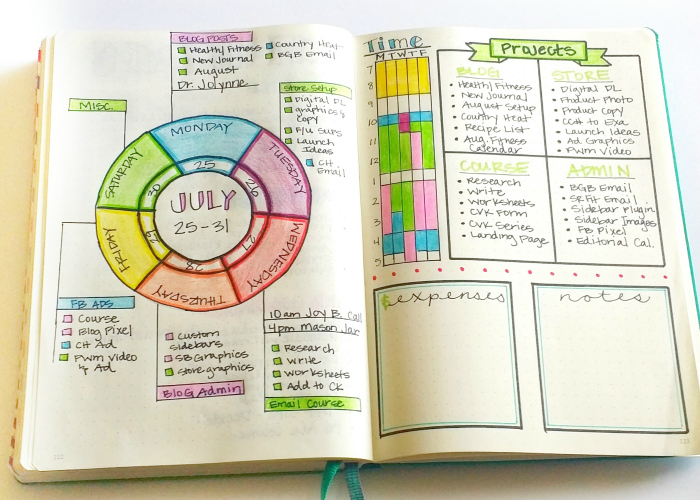 BLOG POSTS
Healthy Fitness
New Journal
August
Dr. Jolynne
Country Heat
BGB Email
MISC.
Store Setup
Digital DL
graphics &
Copy
F/U SUPS
Launch
Ideas
CH
Email
MONDAY
25
TUESDAY
26
WEDNESDAY
27
THURSDAY
28
FRIDAY
29
SATURDAY
30
JULY
25-31
FB ADS
Course
Blog Pixel
CH Ad
PWM Video
& Ad
Custom
sidebars
SB Graphics
Store graphics
Blog Admin
10am Joy B. Call
4pm Mason Jar
Research
Write
Worksheets
Add to CK
Email Course
Time
M T W T F
7
8
9
10
11
12
1
2
3
4
5
Projects
BLOG
Healthy Fitness
New Journal
August Setup
Country Heat
Recipe List
Aug. Fitness
Calendar
STORE
Digital DL
Product Photo
Product Copy
CC# to Exa
Launch Ideas
Ad Graphics
PWM Video
COURSE
Research
Write
Worksheets
CVK Form
CVK Series
Landing Page
ADMIN
BGB Email
SRFit Email
Sidebar Plugin
Sidebar Images
FB Pixel
Editorial Cal.
$expenses
notes